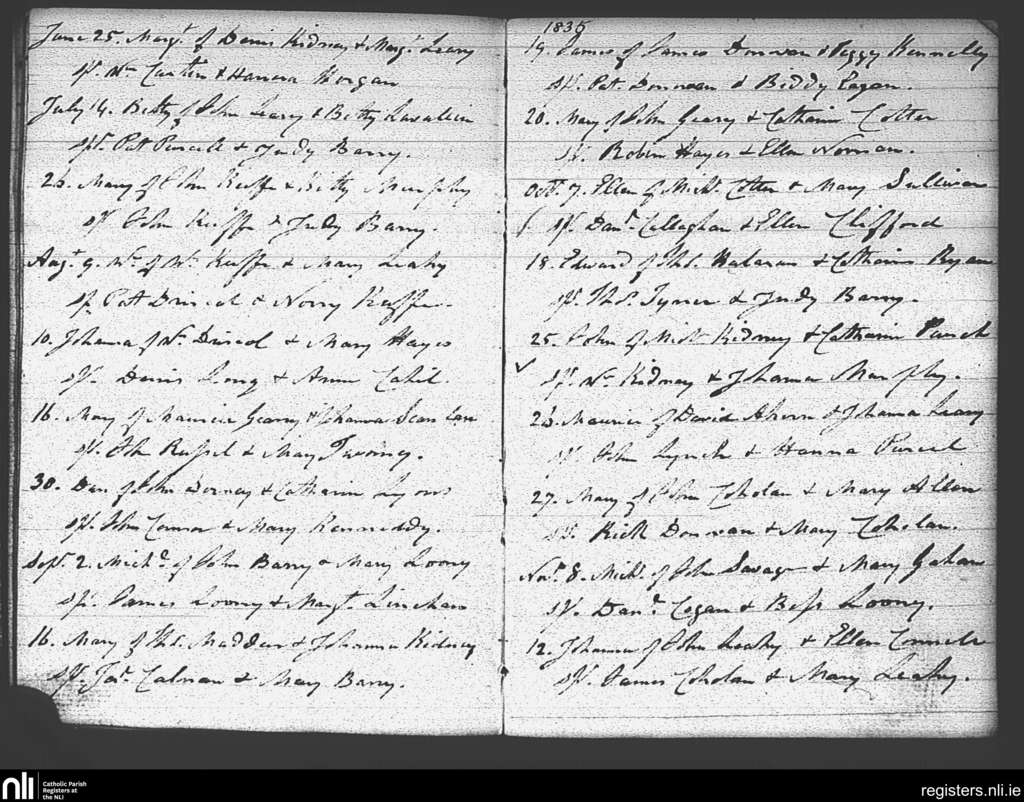 June 25. Margt. of Denis Kidney & Margt. Leary
sp. Wm. & Hanora Horgan
July 14. Betty of John Leary & Betty
sps. Pat Purcell & Judy Barry.
26. Mary of John Keeffe & Kitty Murphy
sp. John Keeffe & Judy Barry.
Augt. 9. Wm. of Wm. Keeffe & Mary Leahy
sp. Pat Driscol & Norry Keeffe.
10. Johanna of Wm. Driscol & Mary Hayes
sp. Denis Long & Anne Cahil.
16. Mary of Maurice Geary & Johanna
sp. John Russel & Mary Twomey.
30. Dan of John & Catharine Lyons
sp. John Connor & Mary Kenneddy.
Sept. 2. Michl. of John Barry & Mary Loony
sp. James Loony & Margt. Linehan
16. Mary of Ths. Madden & Johanna Kidney
sp. Jas. Calnan & Mary Barry.
1835
19. James of James Donovan & Peggy Kennelly
sp. Pat. Donovan & Biddy Eagan.
20. Mary of John Geary & Catharine Cotter
sp. Robin Hayes & Ellen Noonan.
Oct. 7. Ellen of Michl. Cotter & Mary Sullivan
sp. Danl. Callaghan & Ellen Clifford
18. Edward of Ths. & Catharine Ryan
sp. Ths. Tyner & Judy Barry.
25. John of Michl. Kidney & Catharine
sp. Wm. Kidney & Johanna Murphy.
26. Maurice of David Ahern & Johanna Leary
sp. John Lynch & Hanna Purcel
27. Mary of John Coholan & Mary Allen
sp. Rich Donovan & Mary Coholan.
Novr. 8. Michl. of John Savage & Mary Gahan
sp. Danl. Cogan & Bess Loony.
12. Johanna of John Leahy & Ellen Connell
sp. James Coholan & Mary Leahy.
nli Catholic Parish
Registers at
the NLI
registers.nli.ie